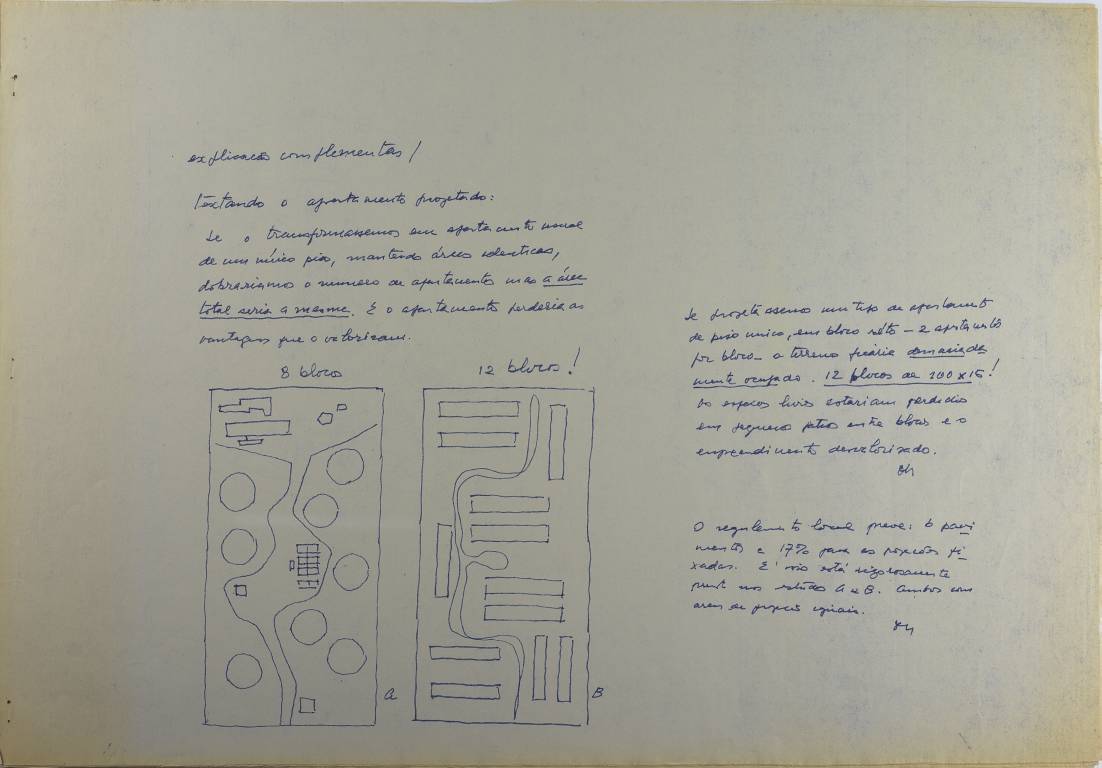 explicação complementar /
Textando o apartamento projetado:
Se o transformassemos em apartamento usual
de um único piso, mantendo áreas identicas,
dobrariamos o numero de apartamentos mas a área
total seria a mesma. E o apartamento perderia as
vantagens que o valorizam.
8 blocos
12 blocos!
A
B
Se projetassemos um tipo de apartamento
de piso unico, em bloco réto – 2 apartamentos
por bloco – o terreno ficaria demasiada
mente ocupado. 12 blocos de 100 x 15!
Os espaços livres estariam perdidos
em pequenos patios entre blocos e o
empreendimento desvalorizado.
O regulamento local preve: 6 pavi
mentos e 17% para as projeções fi
xadas. E isio está rigorosamente
nos estudos A e B. Ambos com
areas de projeção iguais.